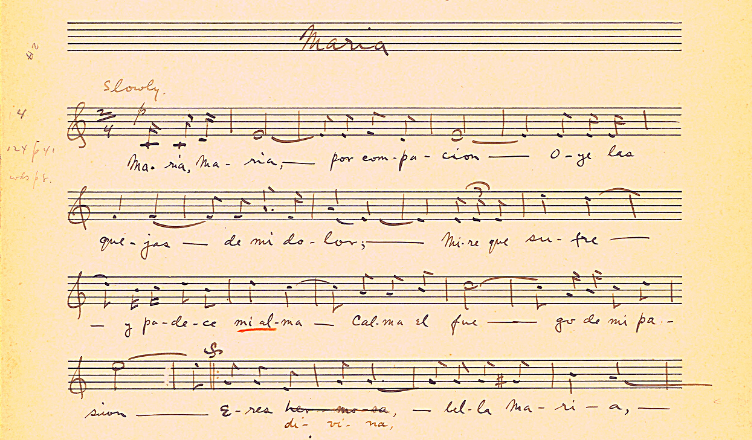 Maria
Slowly.
2
4
p
Ma-ria, Ma-ria,— por com-pa-cion — O-ye las
que-jas — de mi do-lor;— Mi-re que su-fre —
— y pa-de-ce mi al-ma — Cal-ma el fue — go de mi pa-
sion — E-res her-mo-sa, — bel-la Ma-ri-a,—
di-vi-na,